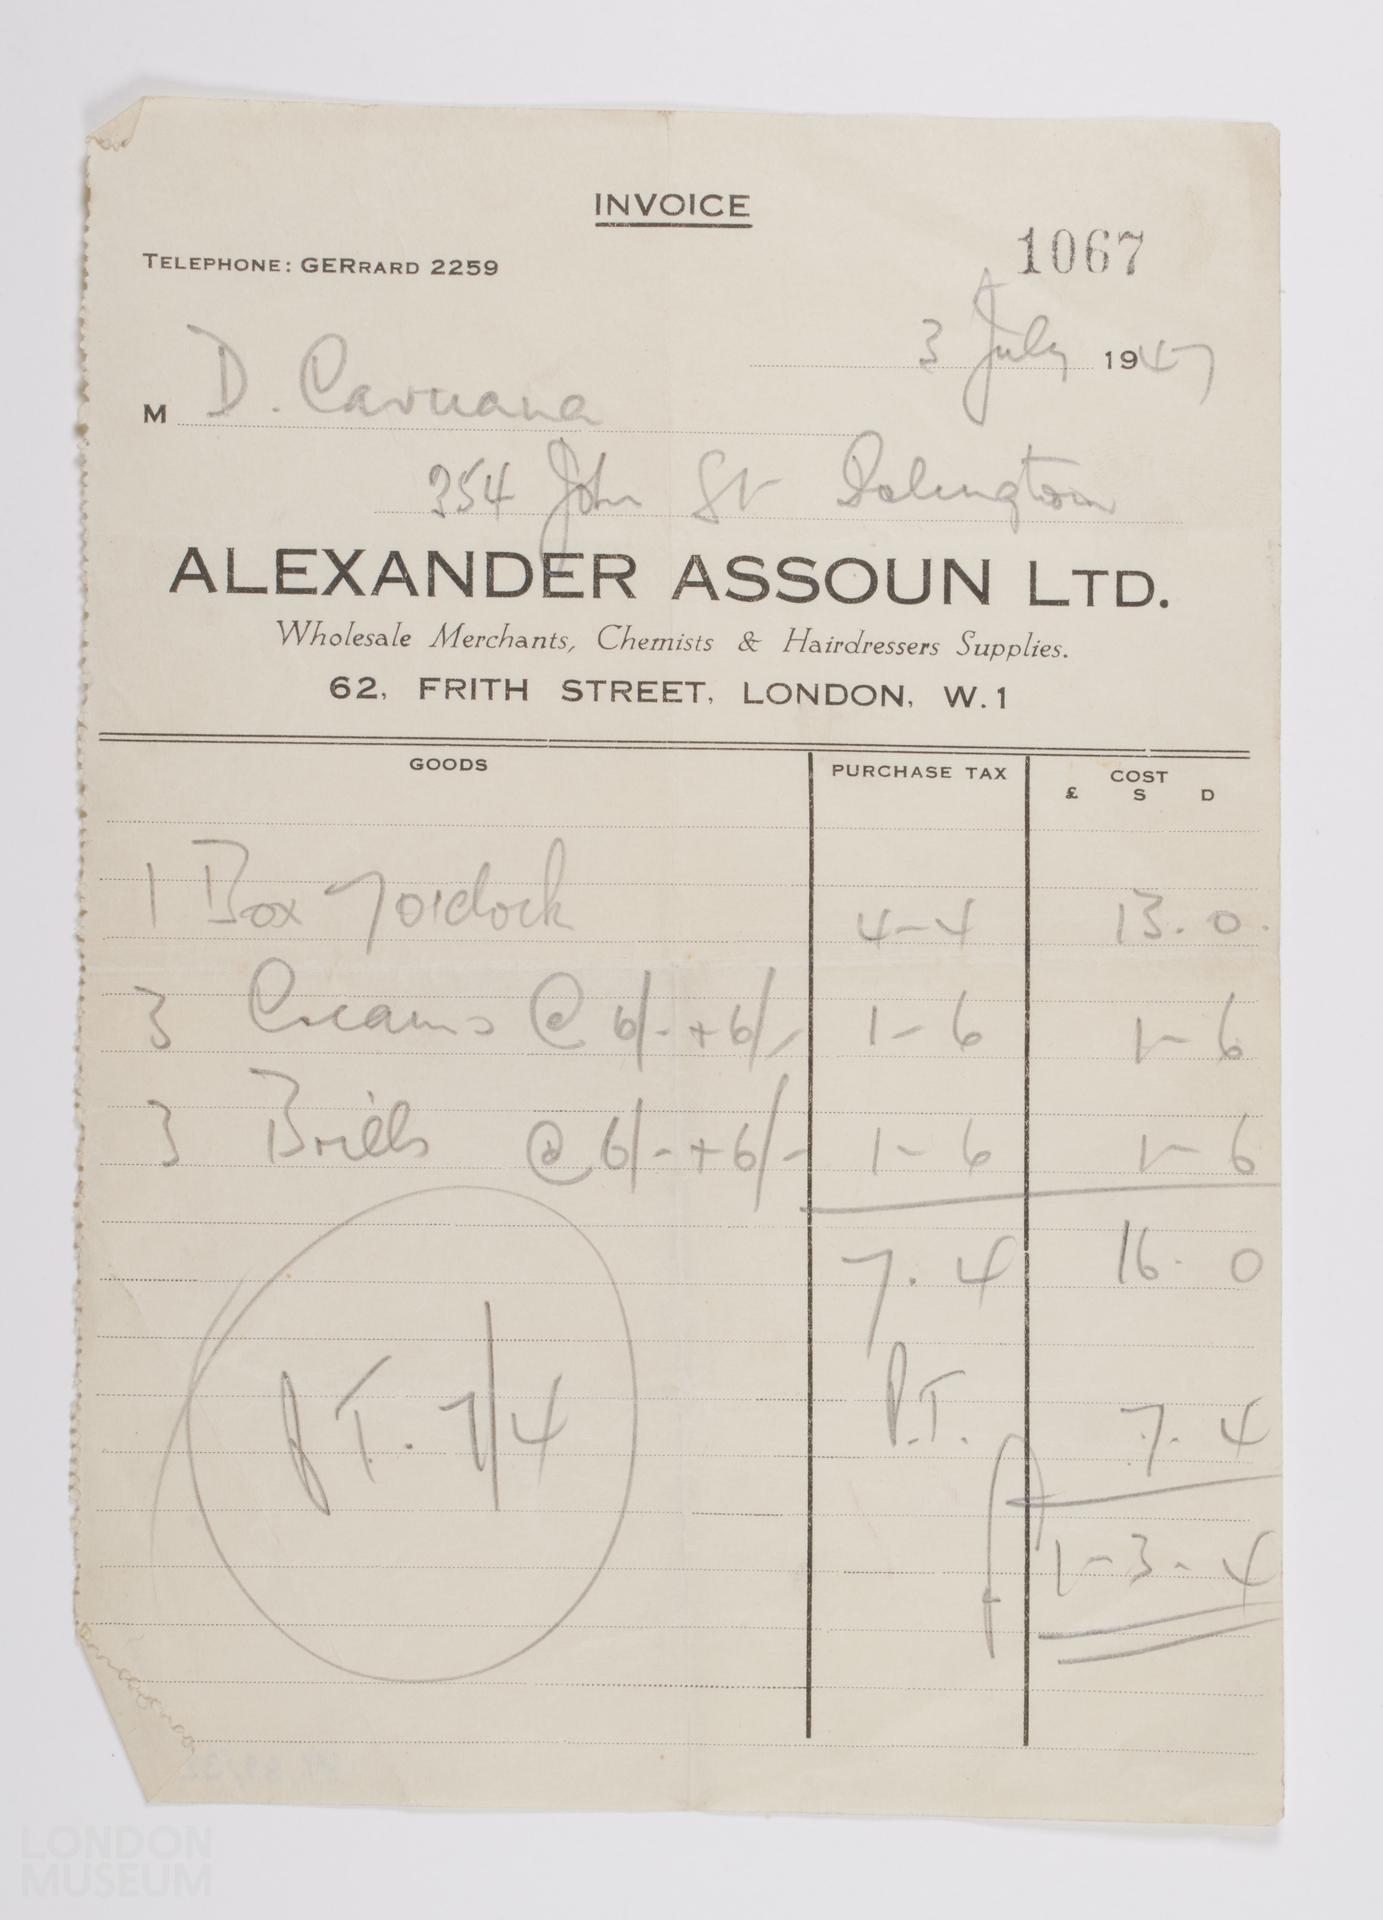 INVOICE
1067
TELEPHONE: GERRARD 2259
3 July 1947
M D. Caruana
354 John St Islington
ALEXANDER ASSOUN LTD.
Wholesale Merchants, Chemists & Hairdressers Supplies.
62, FRITH STREET, LONDON, W.1
GOODS PURCHASE TAX COST
£ S D
1 Box 4-4 13. 0.
3 Creams @ 6/- + 6/- 1-6 1-6
3 Brills @ 6/- + 6/- 1-6 1-6
7. 4 16. 0
P.T. 7/4 P.T. 7. 4
1-3-4
LONDON
MUSEUM